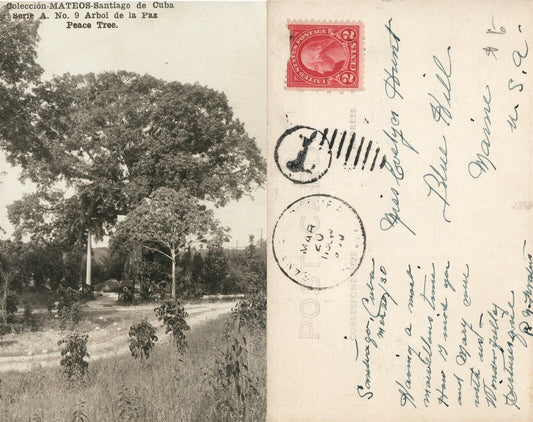 Colección-MATEOS-Santiago de Cuba
Serie A. No. 9 Arbol de la Paz
Peace Tree.
UNITED STATES POSTAGE
2 CENTS 2
1
MAR
20
1930
POST
CORRESPONDENCE
ADDRESS
Miss Evelyn Hunt
Blue Hill
Maine
U. S. A.
Santiago, Cuba
Mch 20/30
Having a most
marvellous time
How I wish you
and Mary were
with us -
Wonderfully
picturesque